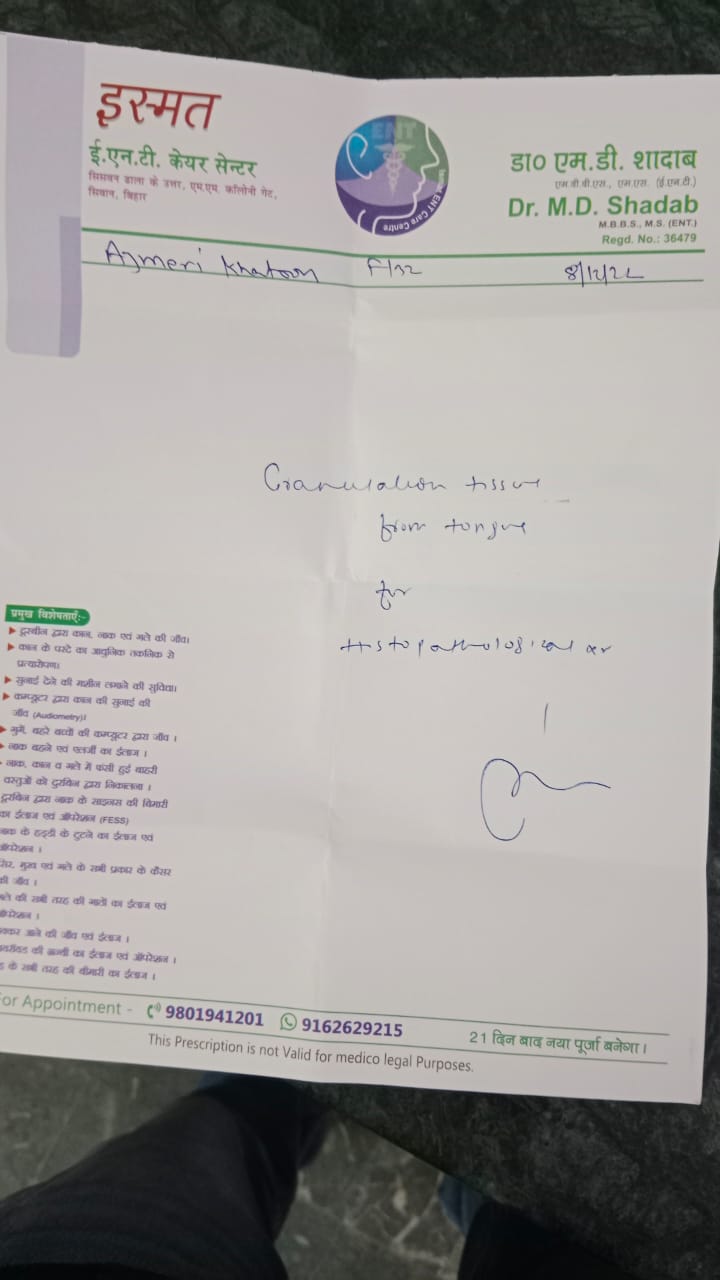 इस्मत
ई.एन.टी. केयर सेन्टर
सिसवन डाला के उत्तर, एम.एम. कॉलोनी गेट,
सिवान, बिहार
ENT
Ismat ENT Care Centre
डा० एम.डी. शादाब
एम.बी.बी.एस., एम.एस. (ई.एन.टी.)
Dr. M.D. Shadab
M.B.B.S., M.S. (ENT.)
Regd. No.: 36479
Ajmeri Khatoon F/32 8/12/22
Granulation tissue
from tongue
for
Histopathological ex
प्रमुख विशेषताएँ:-
दूरबीन द्वारा कान, नाक एवं गले की जाँच।
कान के परदे का आधुनिक तकनिक से
प्रत्यारोपण।
सुनाई देने की मशीन लगाने की सुविधा।
कम्प्यूटर द्वारा कान की सुनाई की
जाँच (Audiometry)।
गुंगें, बहरे बच्चों की कम्प्यूटर द्वारा जाँच ।
नाक बहने एवं एलर्जी का ईलाज ।
नाक, कान व गले में फंसी हुई बाहरी
वस्तुओं को दुरबिन द्वारा निकालना ।
दूरबिन द्वारा नाक के साइनस की बिमारी
का ईलाज एवं ऑपरेशन (FESS)
नाक के हड्डी के टुटने का ईलाज एवं
ऑपरेशन ।
सिर, मुख एवं गले के सभी प्रकार के कैंसर
की जाँच ।
गले की सभी तरह की गाठों का ईलाज एवं
ऑपरेशन ।
चक्कर आने की जाँच एवं ईलाज ।
थायरॉयड की ग्रन्थी का ईलाज एवं ऑपरेशन ।
के सभी तरह की बीमारी का ईलाज ।
For Appointment - 9801941201 9162629215 21 दिन बाद नया पूर्जा बनेगा।
This Prescription is not Valid for medico legal Purposes.